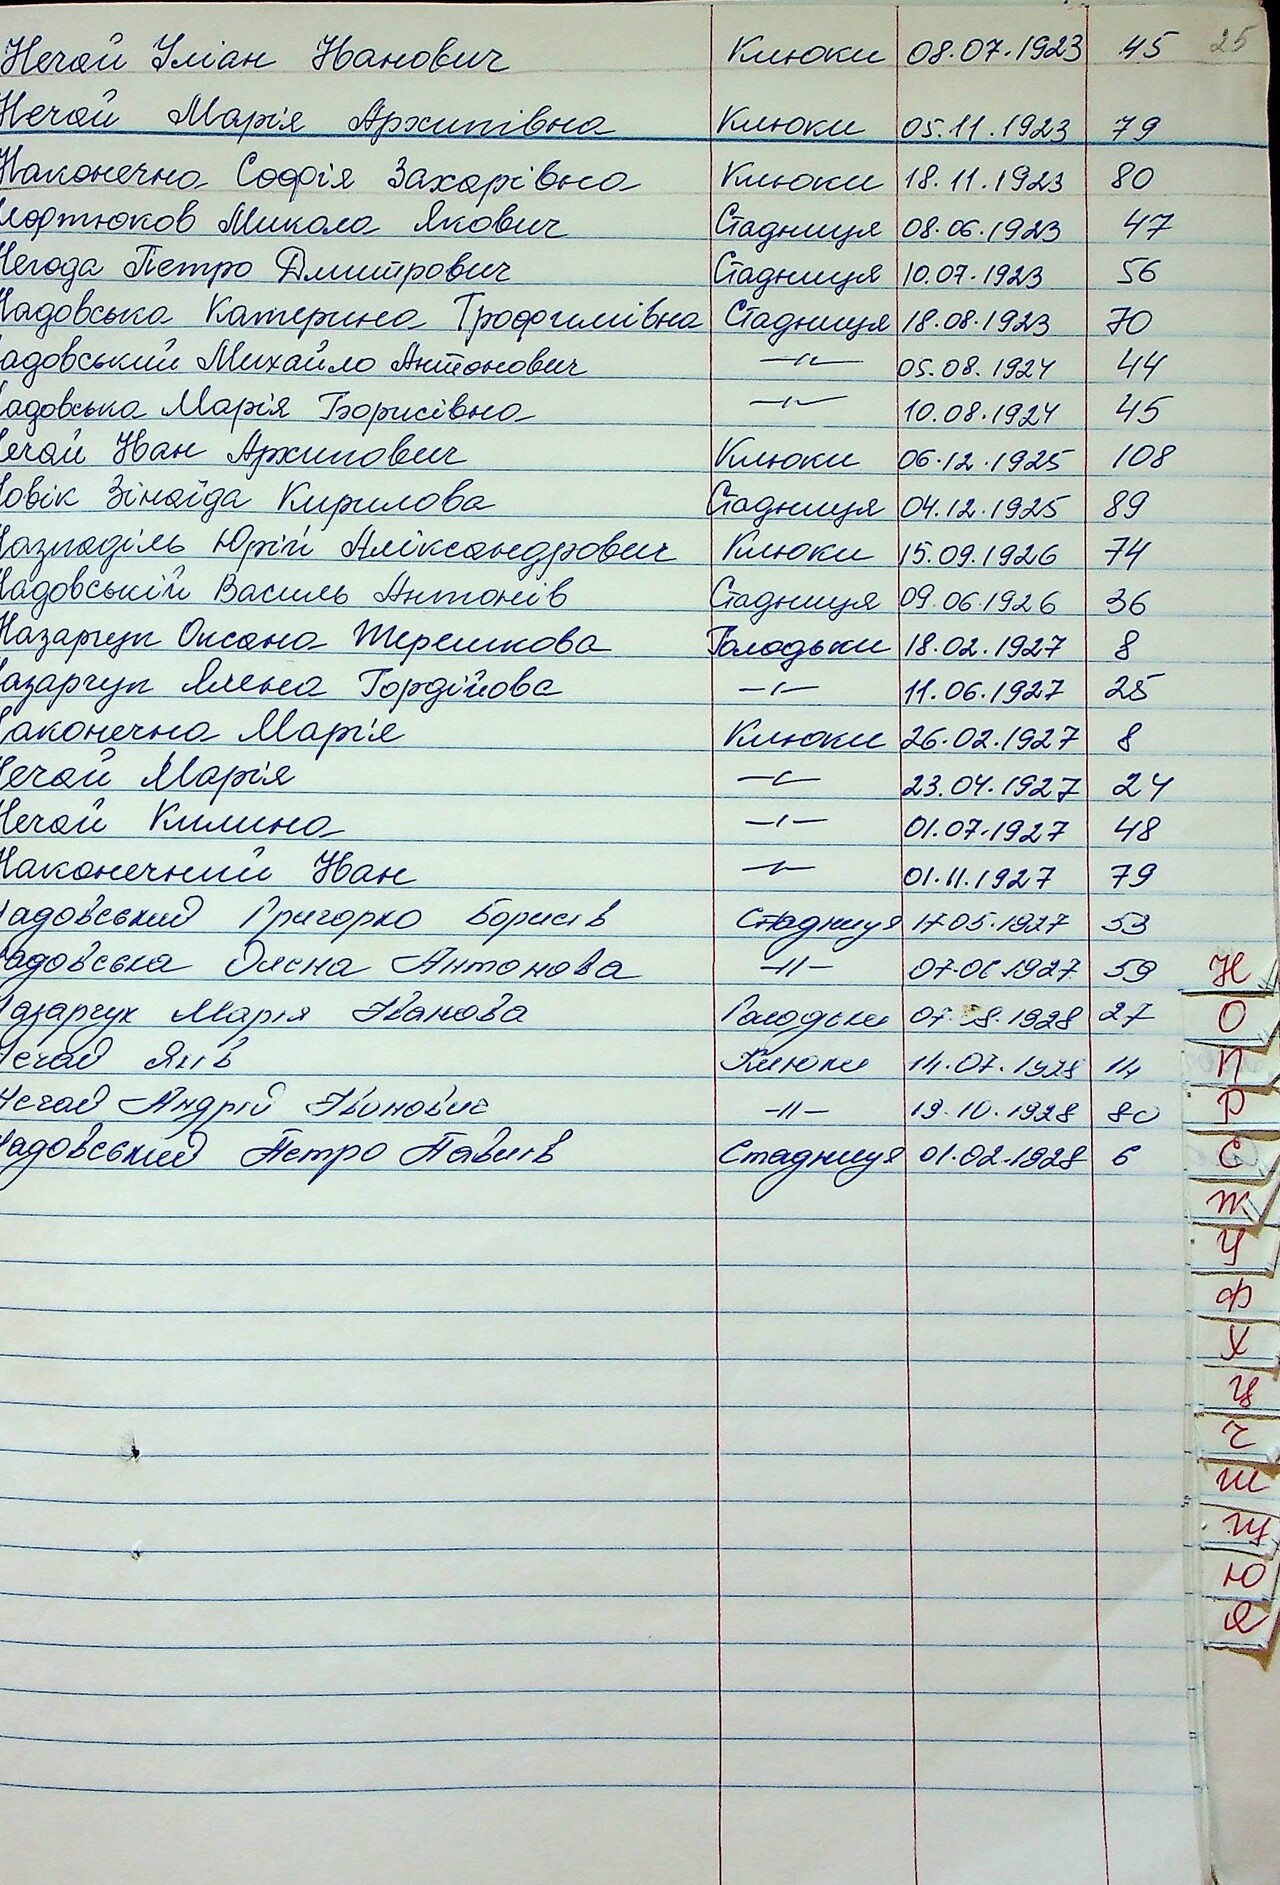 25
Нечай Уліан Іванович Клюки 08.07.1923 45
Нечай Марія Архипівна Клюки 05.11.1923 79
Наконечна Софія Захарівна Клюки 18.11.1923 80
Микола Якович Стадниця 08.06.1923 47
Негода Петро Дмитрович Стадниця 10.07.1923 56
Надовська Катерина Трофимівна Стадниця 18.08.1923 70
адовський Михайло Антонович -"- 05.08.1924 44
адовська Марія Борисівна -"- 10.08.1924 45
Нечай Іван Архипович Клюки 06.12.1925 108
Новік Зінаїда Кирилова Стадниця 04.12.1925 89
Юрій Аліксандрович Клюки 15.09.1926 74
Надовській Василь Антонів Стадниця 09.06.1926 36
Назарчук Оксана Терешкова Голодьки 18.02.1927 8
азарчук Ялена Гордійова -"- 11.06.1927 25
аконечна Марія Клюки 26.02.1927 8
Нечай Марія -"- 23.04.1927 24
Нечай Килина -"- 01.07.1927 48
Наконечний Іван -"- 01.11.1927 79
Надовський Григорко Борисів Стадниця 17.05.1927 53
Надовська Олена Антонова -"- 07.06.1927 59
Назарчук Марія Іванова Голодьки 27
Нечай Яків Клюки 14.07.1928 14
Нечай Андрій Іванович -"- 19.10.1928 80
Надовський Петро Павлів Стадниця 01.02.1928 6
Н
О
П
Р
С
Т
У
Ф
Х
Ц
Ч
Ш
Щ
Ю
Я